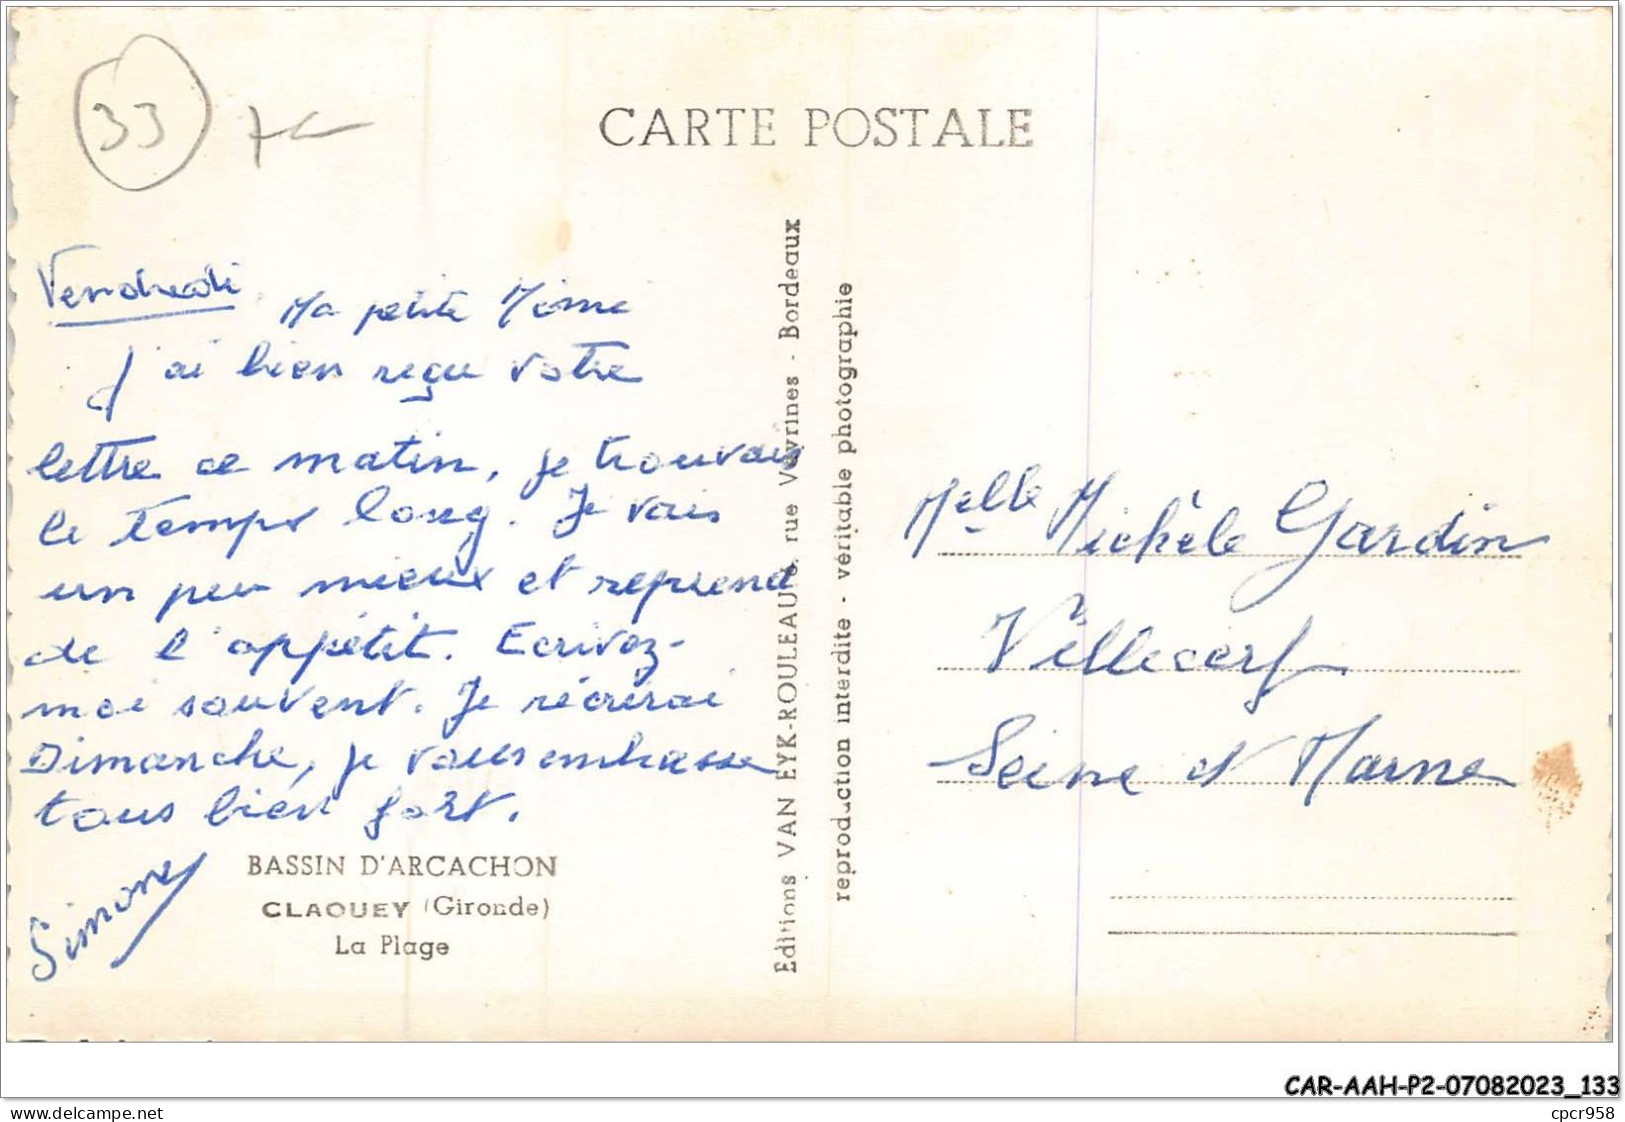 33
CARTE POSTALE
Vendredi
Ma petite Mime
J'ai bien reçu votre
lettre ce matin, je trouvais
le temps long. Je vais
un peu mieux et reprend
de l'appétit. Ecrivez-
moi souvent. Je récrirai
Dimanche, je vous embrasse
tous bien fort.
Simone
BASSIN D'ARCACHON
CLAOUEY (Gironde)
La Plage
Editions VAN EYK-ROULEAU rue Vavrines - Bordeaux
reproduction interdite - véritable photographie
Melle Michèle Gardin
Villecerf
Seine et Marne
CAR-AAH-P2-07082023_133
www.delcampe.net
cpcr958